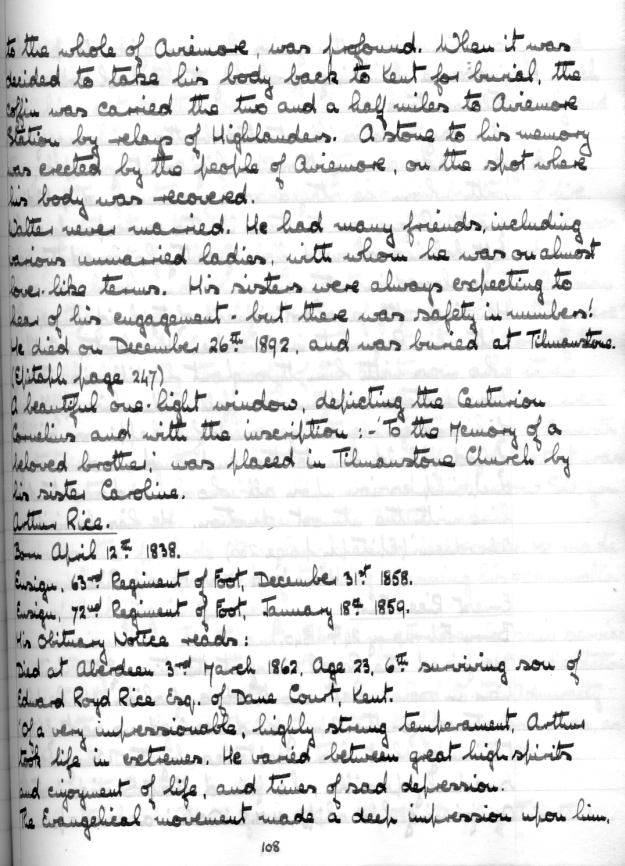 to the whole of Aviemore, was profound. When it was
decided to take his body back to Kent for burial, the
coffin was carried the two and a half miles to Aviemore
Station by relays of Highlanders. A stone to his memory
was erected by the people of Aviemore, on the spot where
his body was recovered.
Walter never married. He had many friends, including
various unmarried ladies, with whom he was on almost
lover-like terms. His sisters were always expecting to
hear of his engagement - but there was safety in numbers!
He died on December 26th 1892, and was buried at Tilmanstone.
(Epitaph page 247)
A beautiful one-light window, depicting the Centurion
Cornelius and with the inscription :- 'To the Memory of a
beloved brother,' was placed in Tilmanstone Church by
his sister Caroline.
Arthur Rice.
Born April 12th 1838.
Ensign, 63rd Regiment of Foot, December 31st 1858.
Ensign, 72nd Regiment of Foot, January 18th 1859.
His Obituary Notice reads:
Died at Aberdeen 3rd March 1862, Age 23, 6th surviving son of
Edward Royd Rice Esq. of Dane Court, Kent.
'Of a very impressionable, highly strung temperament, Arthur
took life in extremes. He varied between great high spirits
and enjoyment of life, and times of sad depression.
The Evangelical movement made a deep impression upon him.
108